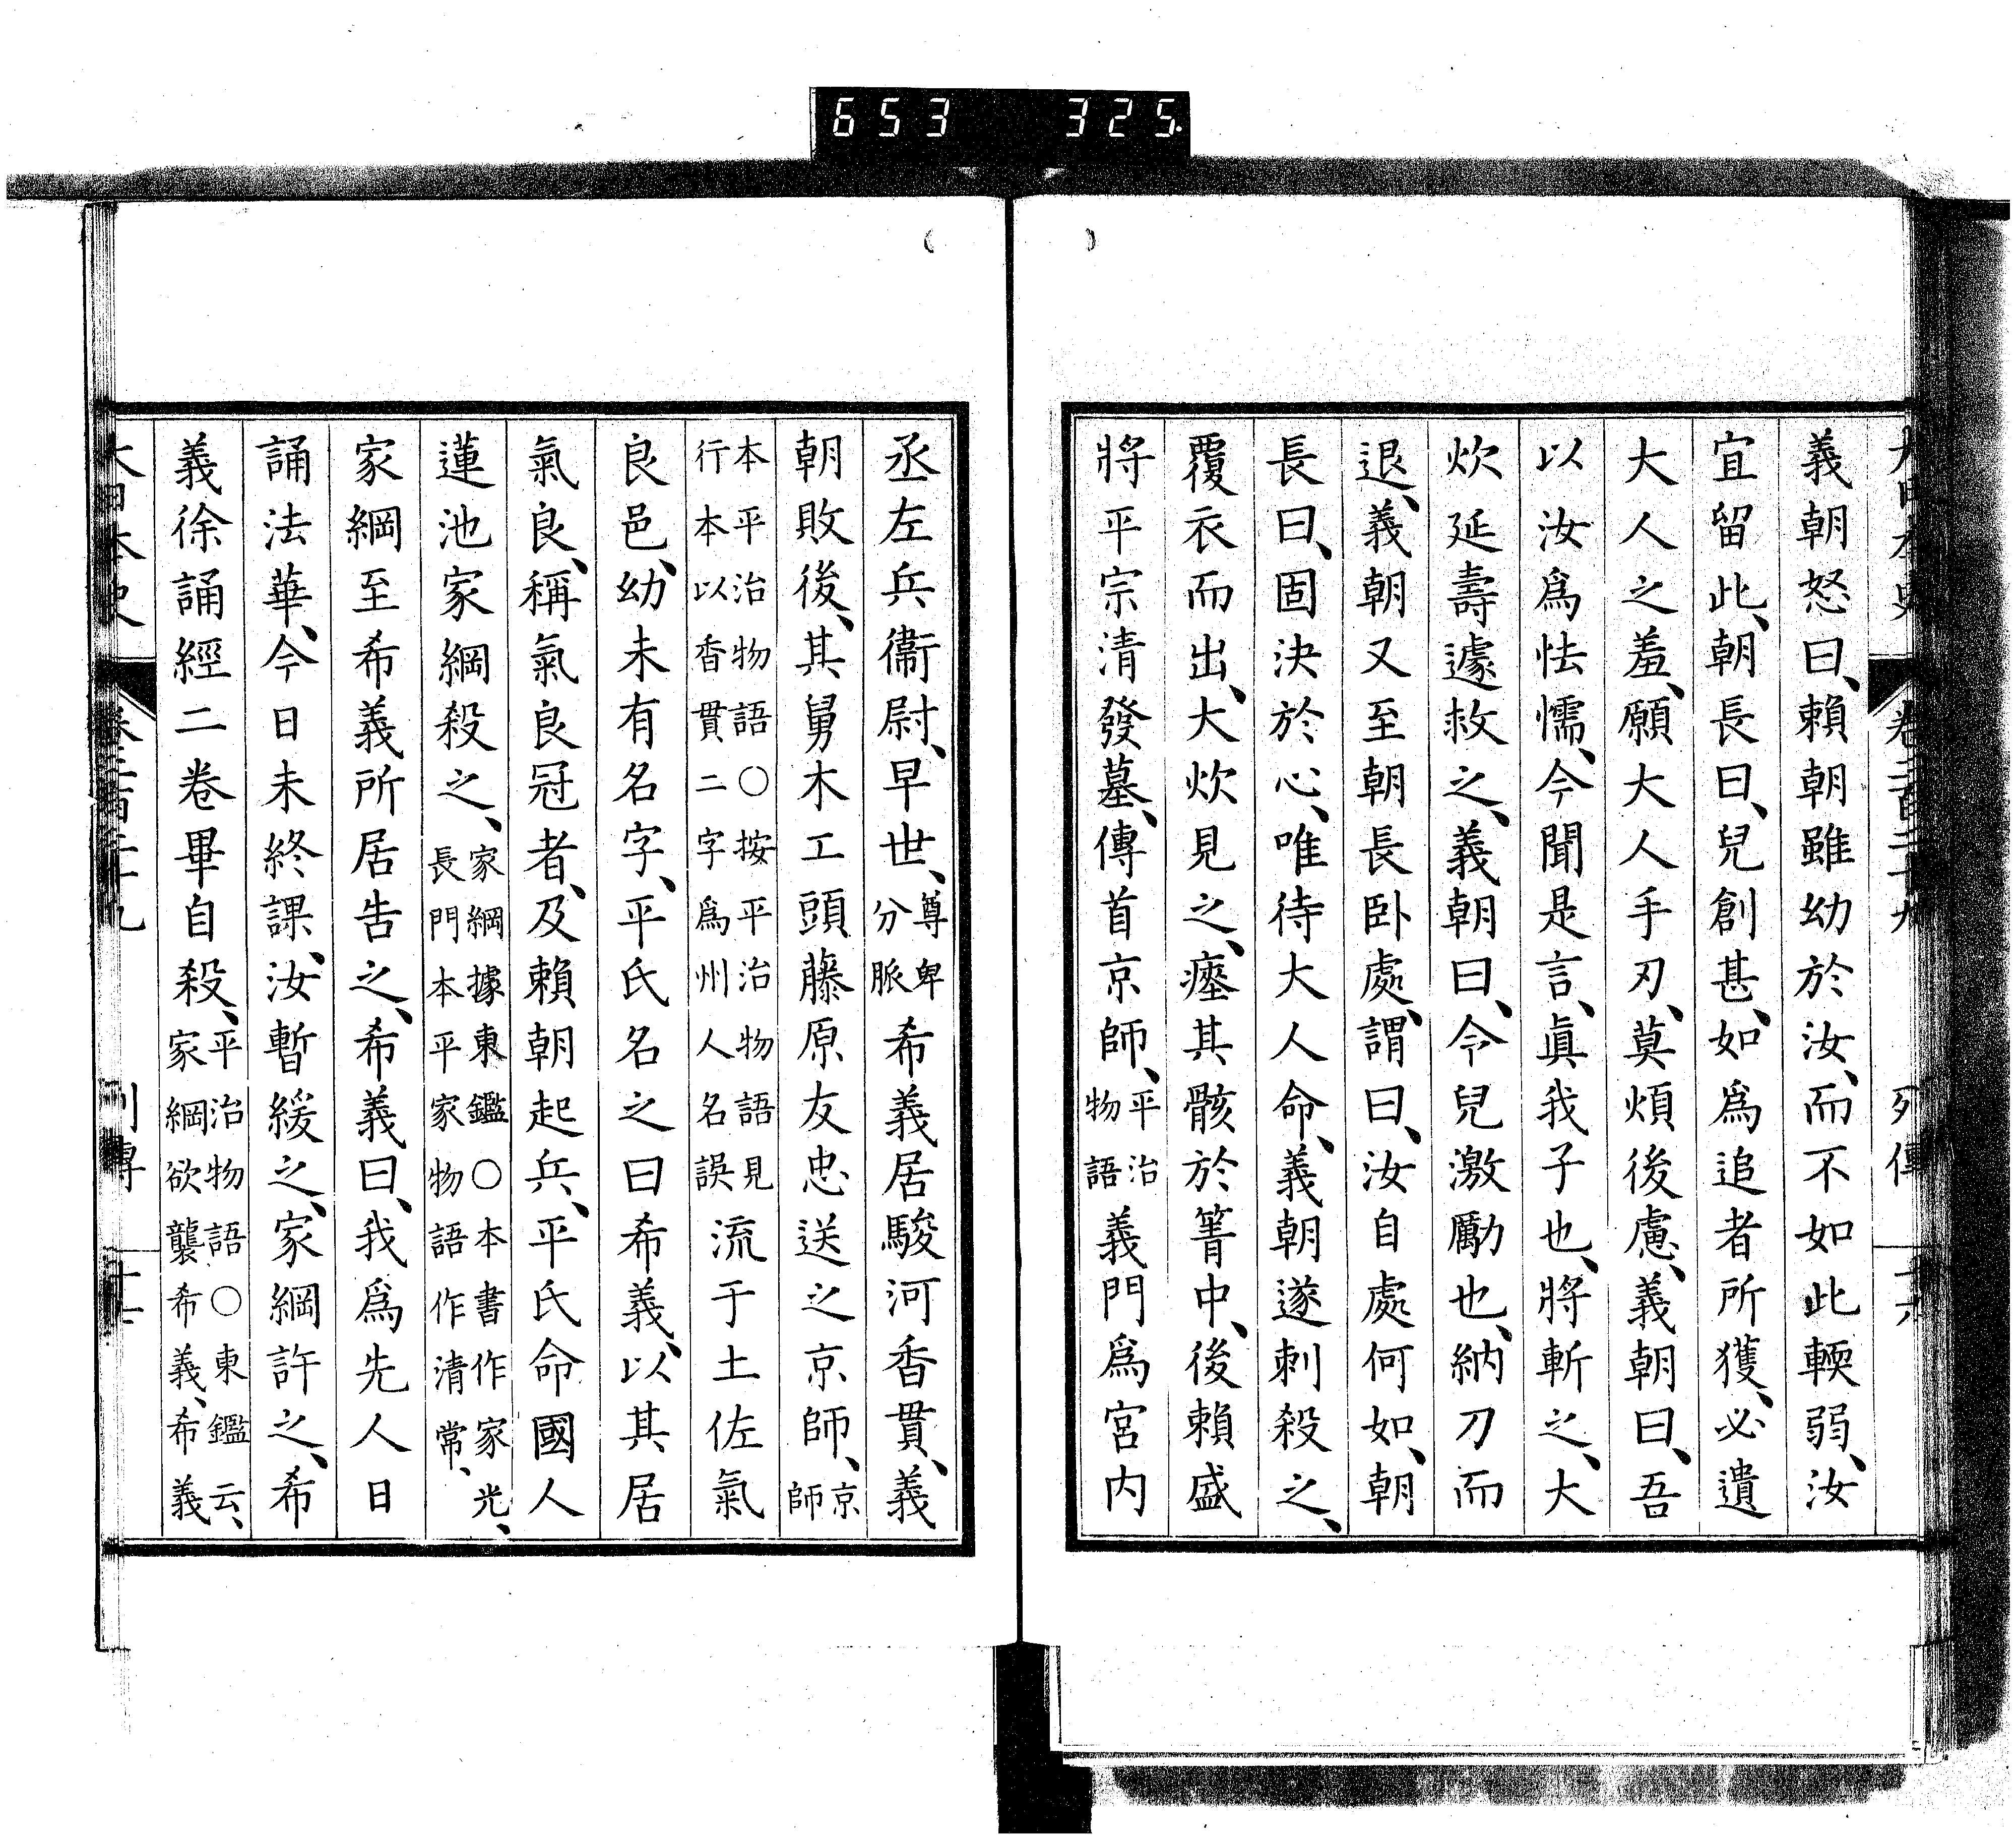 653 325.
大日本史 卷二百二十九 列傳 十六
義朝怒曰、賴朝雖幼於汝、而不如此輭弱、汝
宜留此、朝長曰、兒創甚、如爲追者所獲、必遺
大人之羞、願大人手刃、莫煩後慮、義朝曰、吾
以汝爲怯懦、今聞是言、眞我子也、將斬之、大
炊延壽遽救之、義朝曰、今兒激勵也、納刀而
退、義朝又至朝長卧處、謂曰、汝自處何如、朝
長曰、固決於心、唯待大人命、義朝遂刺殺之、
覆衣而出、大炊見之、瘞其骸於箐中、後賴盛
將平宗清發墓、傳首京師、平治物語義門爲宮内
丞左兵衞尉、早世、尊卑分脈希義居駿河香貫、義
朝敗後、其舅木工頭藤原友忠送之京師、京師
本平治物語〇按平治物語見行本以香貫二字爲州人名誤流于土佐氣
良邑、幼未有名字、平氏名之曰希義、以其居
氣良、稱氣良冠者、及賴朝起兵、平氏命國人
蓮池家綱殺之、家綱據東鑑〇本書作家光、長門本平家物語作清常、
家綱至希義所居告之、希義曰、我爲先人日
誦法華、今日未終課、汝暫緩之、家綱許之、希
義徐誦經二卷畢自殺、平治物語〇東鑑云、家綱欲襲希義、希義
大日本史 卷二百二十九 列傳 十七